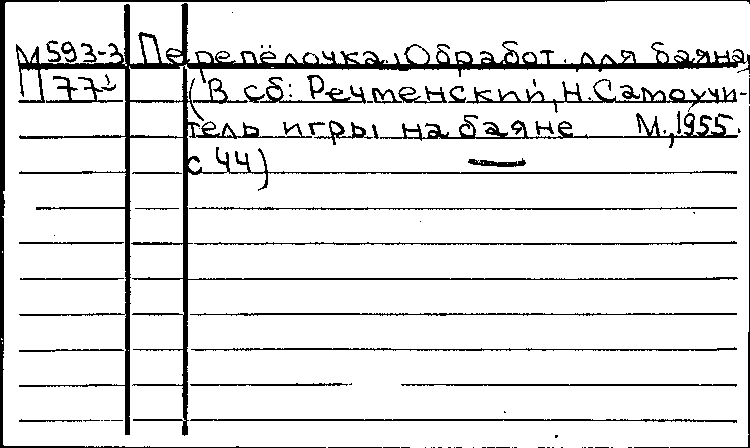 М593-3 Перепёлочка. Обработ. для баяна,
П77 (В сб: Речменский, Н. Самоучи-
тель игры на баяне. М., 1955.
с 44)